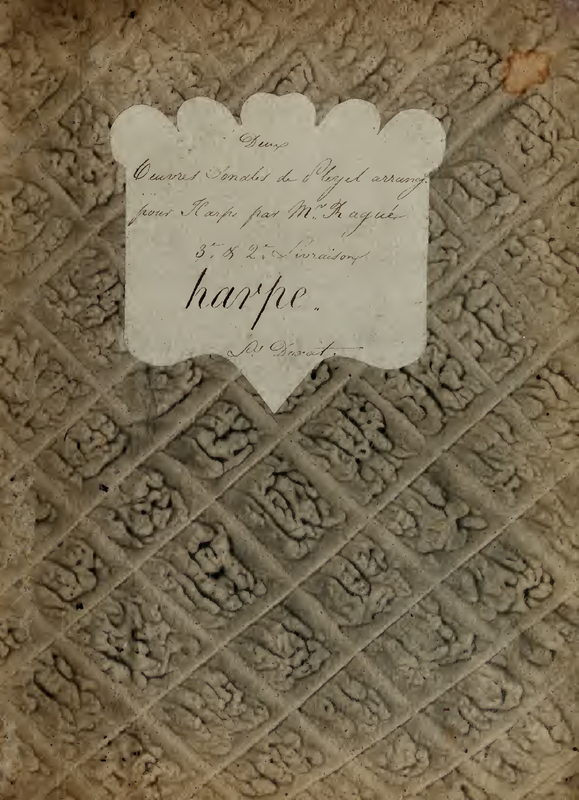 Deux
Oeuvres Sonates de Pleyel arrang.
pour Harpe par Mr. Ragué
3e. & 2e. Livraisons
harpe.